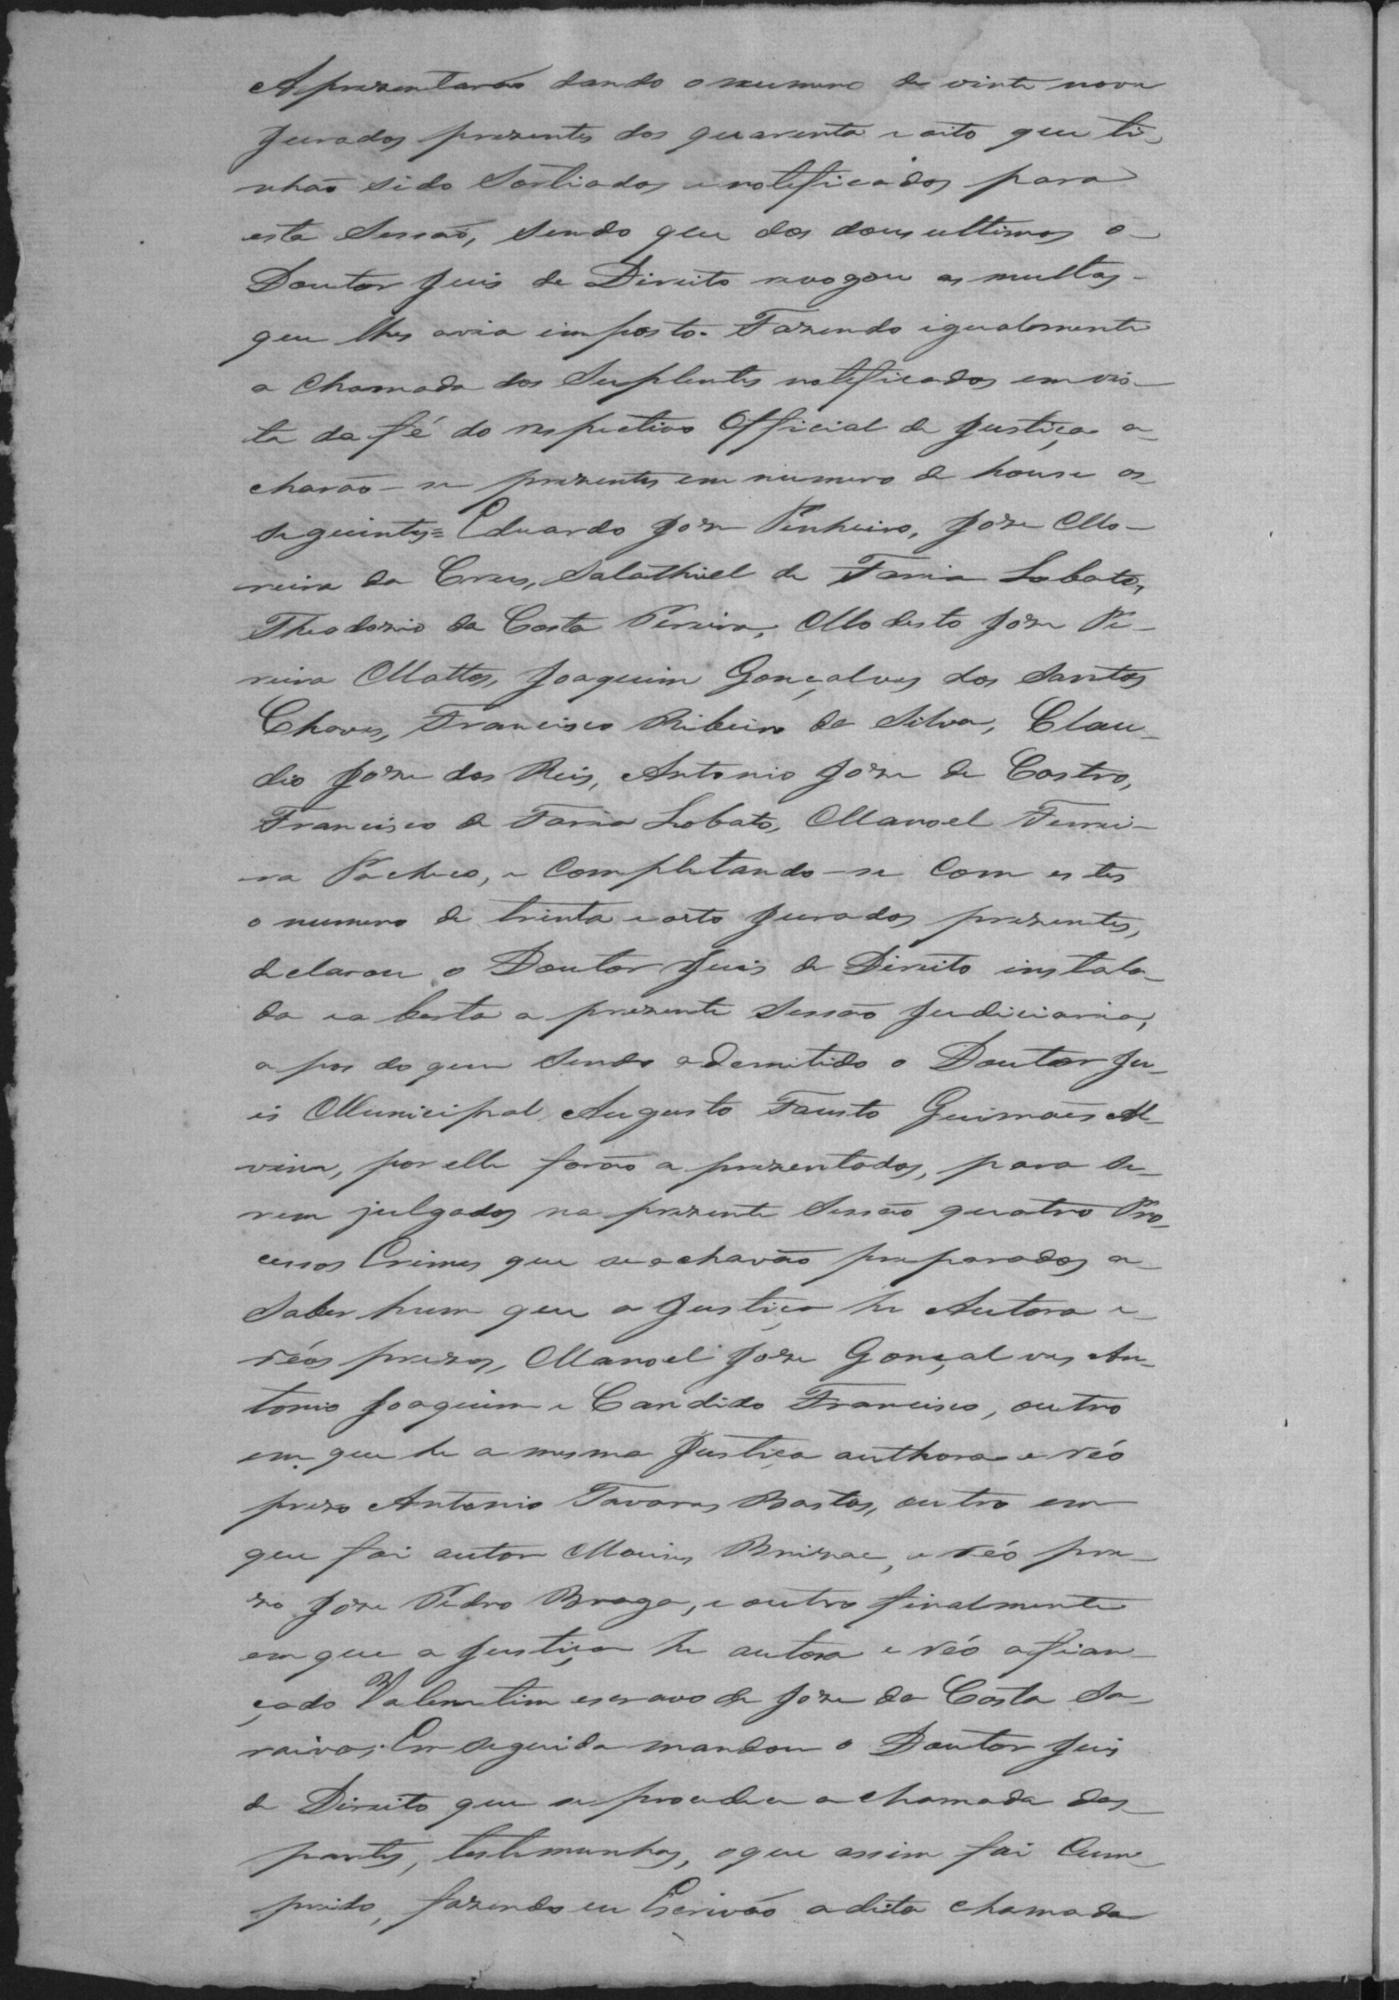 Aprezentarão dando o numero de vinte nove
Jurados prezentes dos quarenta e oito que ti-
nhão sido Sortiados e notificados para
esta Sessão, sendo que dos dous ultimos o
Doutor Juis de Direito revogou as multas
que lhes avia imposto. Fazendo igualmente
a Chamada dos Suplentes notificados em vis-
ta da fé do respectivo Official de Justiça a-
charão-se prezentes em numero de honse os
seguintes= Eduardo Joze Pinheiro, Joze Mo-
reira da Crus, Salathiel de Faria Lobato,
Theodorio da Costa Pereira, Modesto Joze Pe-
reira Mattos, Joaquim Gonçalves dos Santos
Chaves, Francisco Ribeiro da Silva, Clau-
dio Joze dos Reis, Antonio Joze de Castro,
Francisco de Faria Lobato, Manoel Ferrei-
ra Pacheco, e Completando-se Com estes
o numero de trinta e oito Jurados prezentes,
declarou o Doutor Juis de Direito instala-
da e aberta a prezente Sessão Judiciaria,
a pos do que sendo ademitido o Doutor Ju-
is Municipal Augusto Fausto Guimães Al-
vim, por elle forão a prezentados, para Se-
rem julgados na prezente Sessão quatro Pro-
cessos Crimes que se achavão preparados a
Saber hum que a Justiça he Autora e
réos prezos, Manoel Joze Gonçalves An-
tonio Joaquim e Candido Francisco, outro
em que he a mesma Justiça authora e réo
prezo Antonio Tavares Bastos, outro em
que foi autor e réo pre-
zo Joze Pedro Braga, e outro finalmente
em que a Justiça he autora e réo afian-
çado Valemtim escravo de Joze da Costa Sa-
raiva. Em seguida mandou o Doutor Juis
de Direito que se procedece a chamada das
partes, testemunhas, o que assim foi Cum-
prido, fazendo eu Escrivão a dita chamada